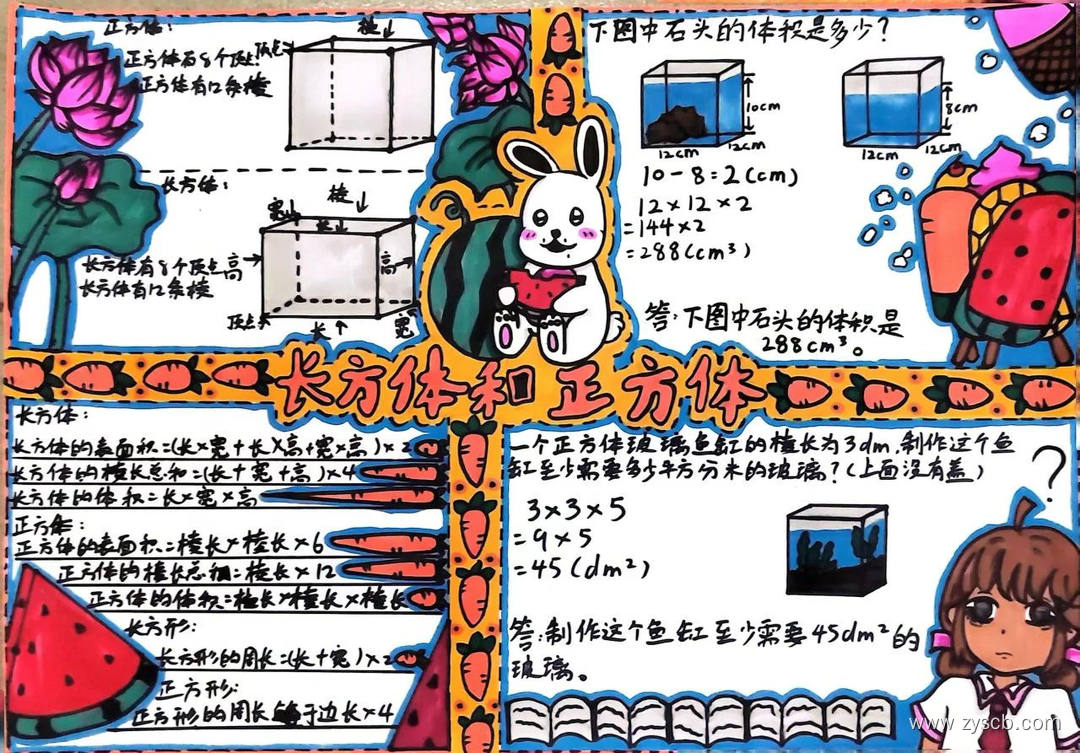 正方体:
正方体有8个顶点.
正方体有12条棱
顶点
棱
长方体:
棱
宽
长
高
高
长方体有8个顶点
长方体有12条棱
顶点
长
宽
下图中石头的体积是多少?
10cm
12cm
12cm
8cm
12cm
12cm
10-8=2(cm)
12×12×2
=144×2
=288(cm³)
答:下图中石头的体积是
288cm³。
长方体和正方体
长方体:
长方体的表面积=(长×宽+长×高+宽×高)×2
长方体的棱长总和=(长+宽+高)×4
长方体的体积=长×宽×高
正方体:
正方体的表面积=棱长×棱长×6
正方体的棱长总和=棱长×12
正方体的体积=棱长×棱长×棱长
长方形:
长方形的周长=(长+宽)×2
正方形:
正方形的周长等于边长×4
一个正方体玻璃鱼缸的棱长为3dm,制作这个鱼
缸至少需要多少平方分米的玻璃?(上面没有盖)
?
3×3×5
=9×5
=45(dm²)
答:制作这个鱼缸至少需要45dm²的
玻璃。
www.zyscb.com